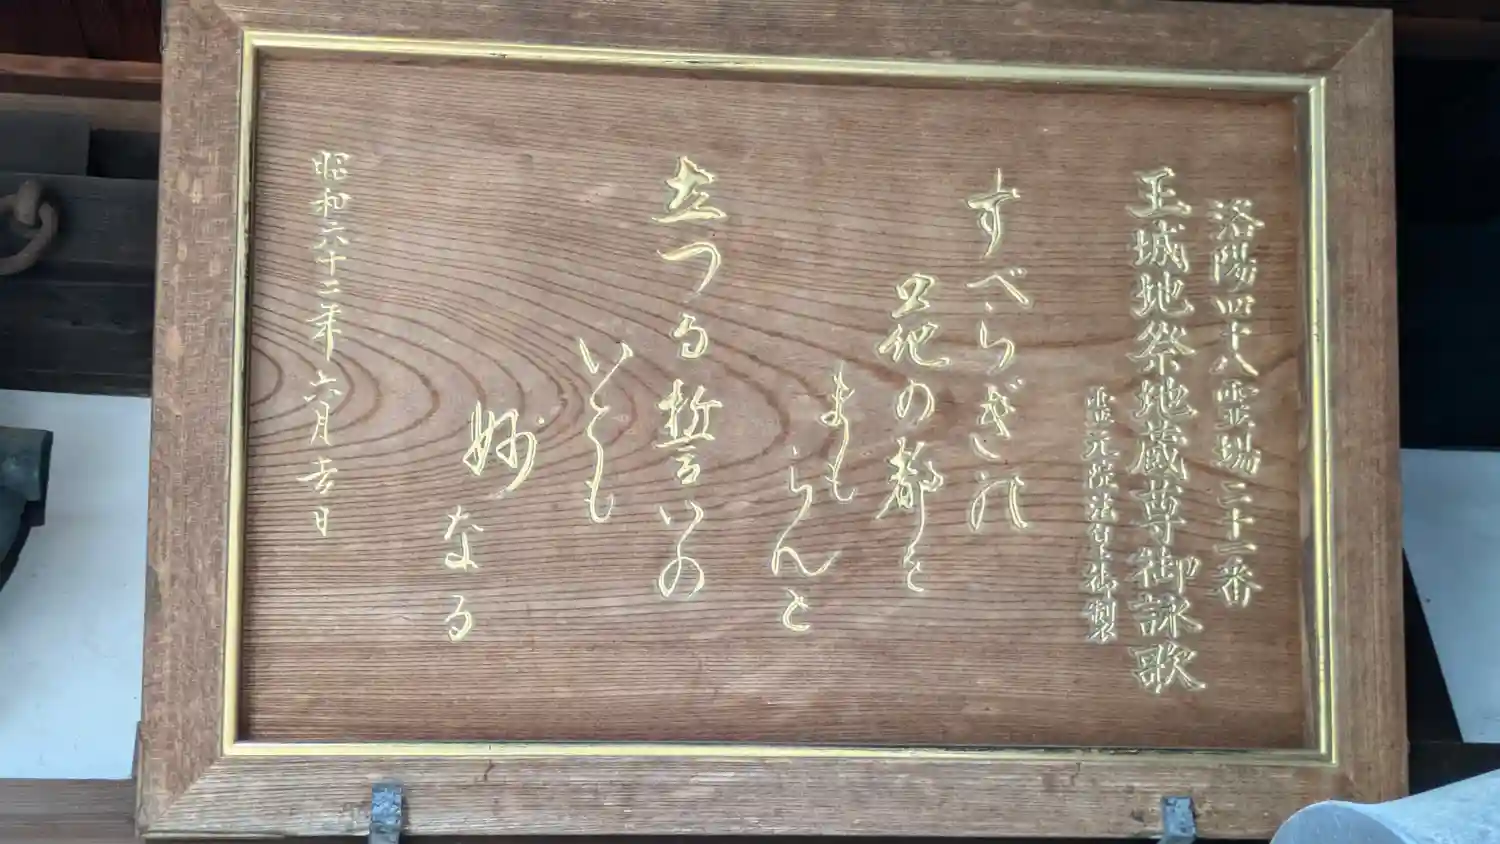 洛陽四十八霊場二十一番
王城地祭地蔵尊御詠歌
霊元院法皇御製
すべらぎの
花の都を
まも
らんと
立つる誓いの
いとも
妙
なる
昭和六十二年六月吉日